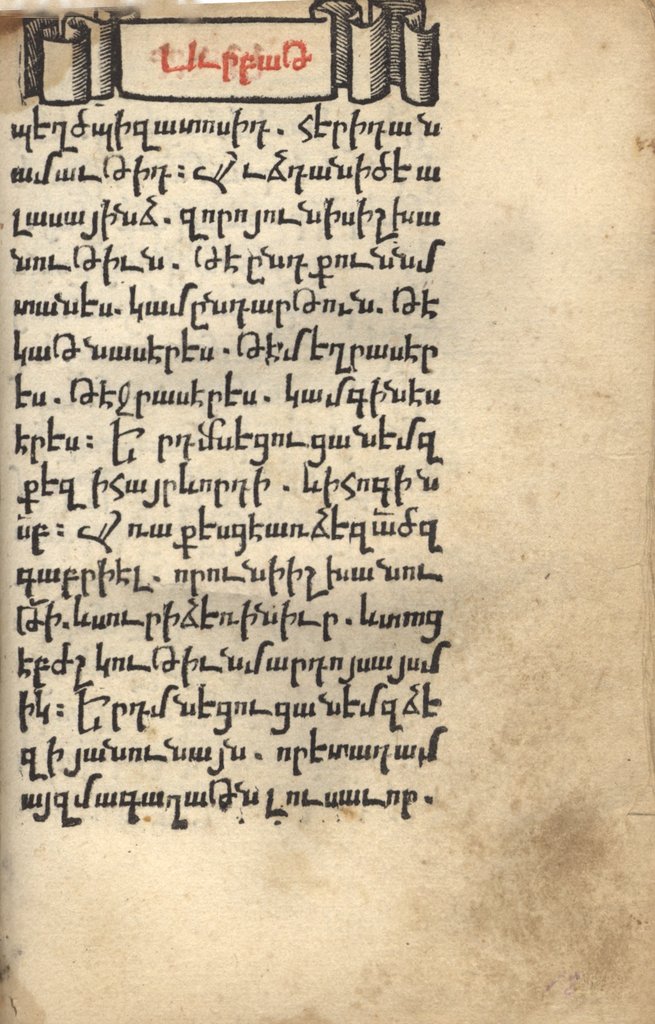 Աւրբաթ
պեղծպիզատոսիդ . հերիդան
ամաւթիդ ։ Աւձդանիժեա
լասայինձ . զորոյունիսիշխա
նութիւն . թէընդքունսմ
տանես . կամընդարթուն . թե
կաթնասերես . թեմեղրասեր
ես . թեջրասերես . կամգինես
երես ։ Երդմնեցուցանեմզ
քեզ իհայրևորդի . ևիհոգին
սբ ։ Առաքեսցեառձեզածզ
գաբրիել . որունիիշխանու
թի . ևսուրիձեռինիւր . ևտոց
եբժշկութիւնմարդոյսայսմ
իկ ։ Երդմնեցուցանեմզձե
զիյանունայն . որետադամ
այզմագաղաթնլուսաւոր .